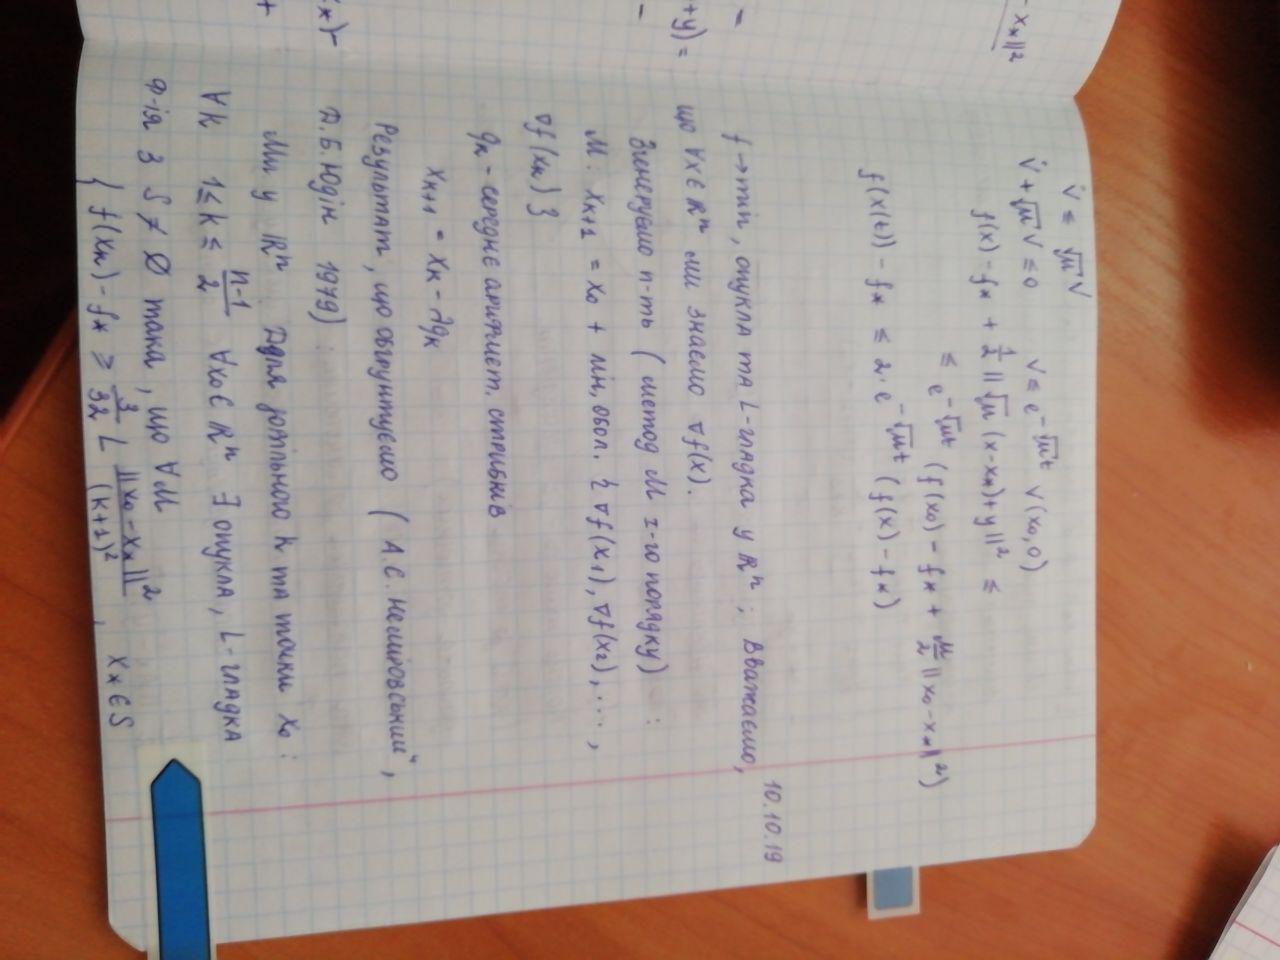 V̇ ≤ √μ V
V̇ + √μ V ≤ 0 V ≤ e^{-√μt} V(x₀,0)
- x*||²
f(x) - f* + 1/2 ||√μ (x-x*)+y||² ≤
≤ e^{-√μt} (f(x₀) - f* + μ/2 ||x₀-x*||²)
f(x(t)) - f* ≤ 2·e^{-√μt} (f(x) - f*)
10.10.19
f→min, опукла та L-гладка у ℝⁿ; Вважаємо,
+y) =
що ∀x∈ℝⁿ ми знаємо ∇f(x).
Згенеруємо п-ть (метод M I-го порядку) :
M: x_{k+1} = x₀ + лін. обол. {∇f(x₁), ∇f(x₂), ...,
∇f(x_k)}
g_k - середнє арифмет. стрибків
x_{k+1} = x_k - λg_k
Результат, що обґрунтуємо (А.С. Неміровський,
x*)-
Д.Б. Юдін 1979):
+
Ми у ℝⁿ. Для довільного k та точки x₀:
∀k 1≤k≤ (n-1)/2 ∀x₀∈ℝⁿ ∃ опукла, L-гладка
ф-ія з S ≠ ∅ така, що ∀M
{ f(x_k) - f* ≥ 3/32 L ||x₀-x*||²/(k+1)², x*∈S